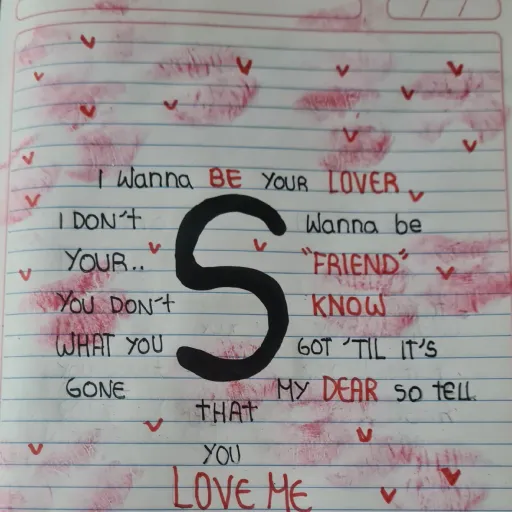 I Wanna BE YOUR LOVER
I DON't Wanna be
YOUR.. "FRIEND"
S
YOU DON't KNOW
WHAT YOU GOT 'TIL IT'S
GONE MY DEAR SO tELL
tHAt
YOU
LOVE ME